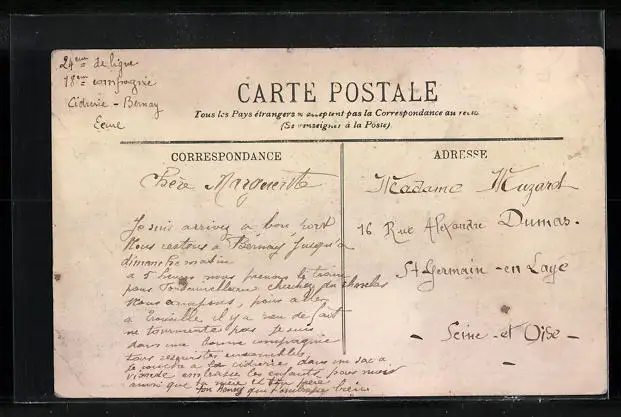 24eme de ligne
18eme compagnie
Cidrerie - Bernay
Eure
CARTE POSTALE
Tous les Pays étrangers n'acceptent pas la Correspondance au recto
(Se renseigner à la Poste)
CORRESPONDANCE
Chère Marguerite
Je suis arrivez a bon port
Nous restons à Bernay jusqu'a
dimanche matin
a 5 heures nous prenons le train
pour chercher du
Nous campons, puis aller
a Trouville il y a rien de fait
ne tourmente pas je suis
dans une bonne compagnie
tous ensembles
je couche a la cidrerie dans un sac a
viande embrasse les enfants pour moi
ainsi que ta mère et ton père
ton Henry qui t'embrasse bien
ADRESSE
Madame Muzard
16 Rue Alexandre Dumas.
St Germain - en Laye
- Seine - et Oise -